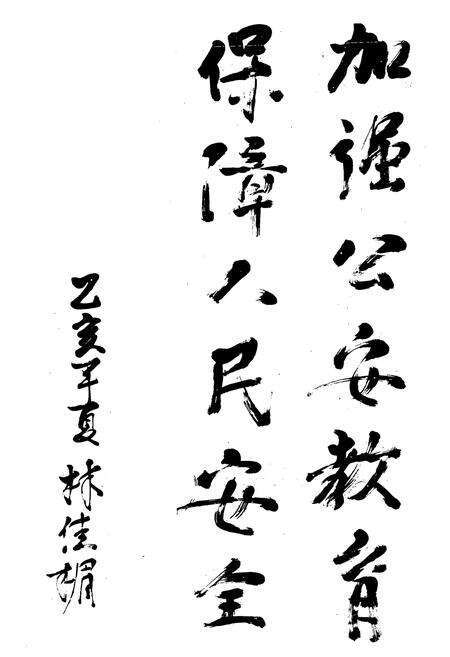 加强公安教育
保障人民安全
乙亥年夏 林佳楣